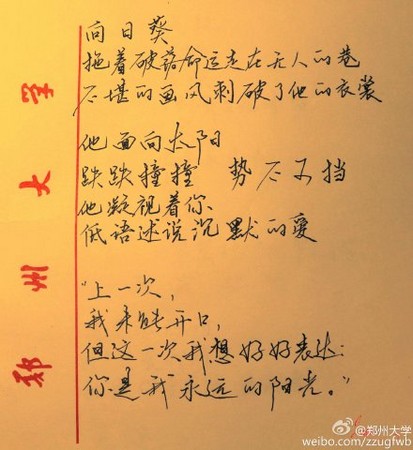 向日葵
拖着破落命运走在无人的巷
不堪的画风刺破了他的衣裳
他面向太阳
跌跌撞撞 势不可挡
他凝视着你
低语述说沉默的爱
"上一次,
我未能开口,
但这一次我想好好表达:
你是我永远的阳光。"
郑州大学
@郑州大学
weibo.com/zzugfwb